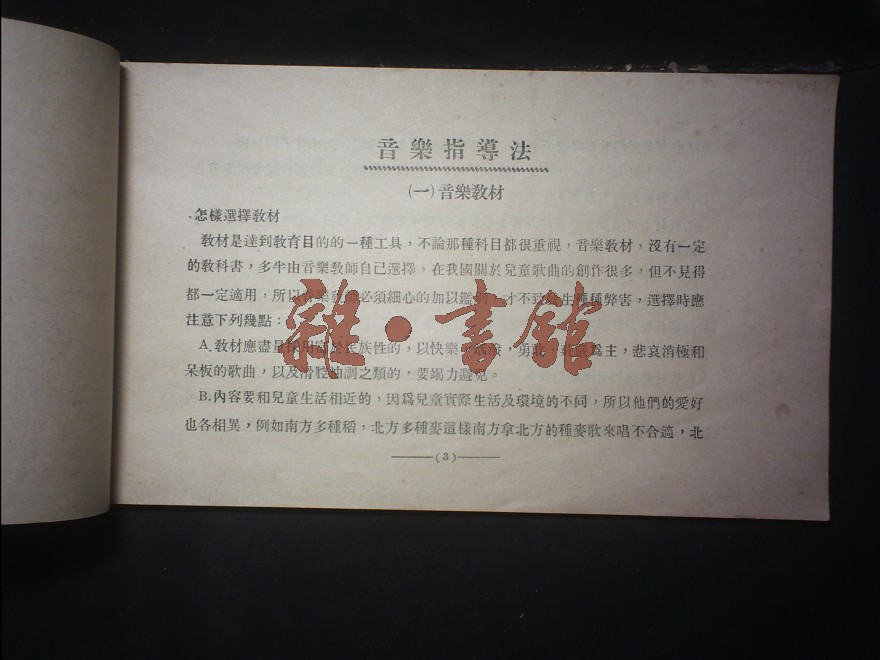 音樂指導法
(一)音樂教材
·怎樣選擇教材
教材是達到教育目的的一種工具，不論那種科目都很重視，音樂教材，沒有一定
的教科書，多半由音樂教師自己選擇，在我國關於兒童歌曲的創作很多，但不見得
都一定適用，所以音樂教師必須細心的加以鑑別，才不致發生種種弊害，選擇時應
注意下列幾點：
A.教材應盡量採用富於民族性的，以快樂，活潑，勇敢，莊嚴爲主，悲哀消極和
呆板的歌曲，以及滑腔油調之類的，要竭力避免。
B.內容要和兒童生活相近的，因爲兒童實際生活及環境的不同，所以他們的愛好
也各相異，例如南方多種稻，北方多種麥這樣南方拿北方的種麥歌來唱不合適，北
(3)
雜·書館